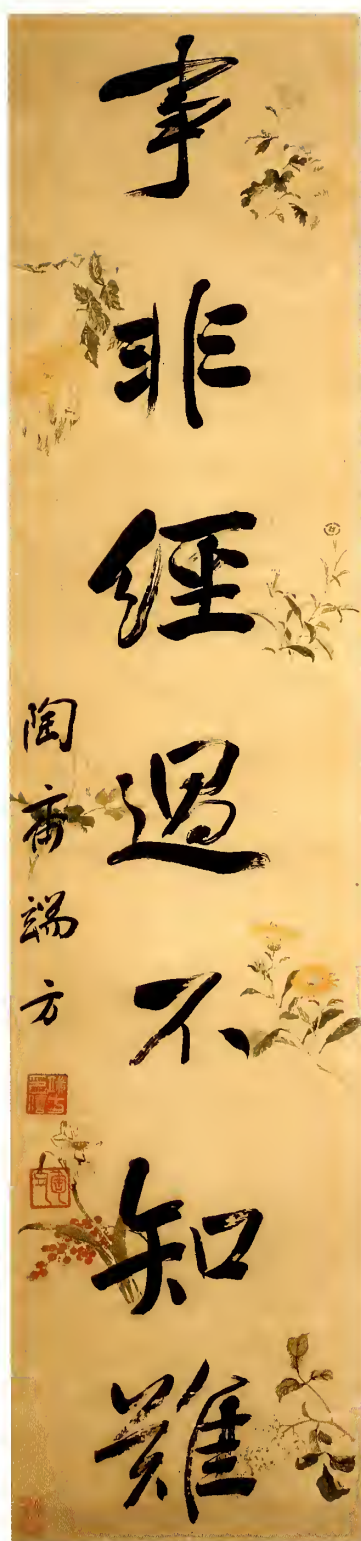 事非經過不知難
陶斎端方